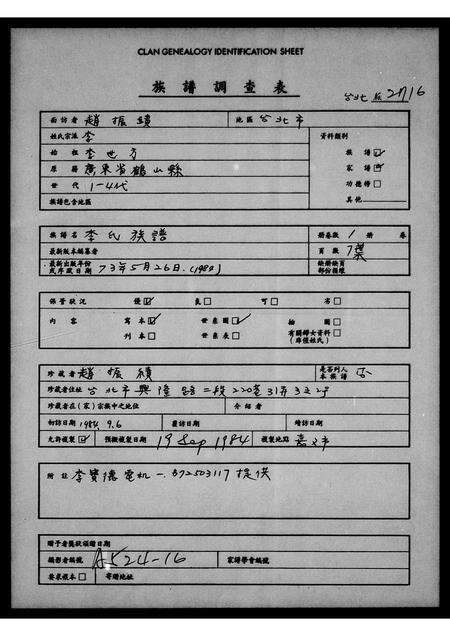 CLAN GENEALOGY IDENTIFICATION SHEET
族譜調查表
台北 2716
面訪者 趙振績 地區 台北市
姓氏宗派 李 資料類別
始祖 李世芳 族譜☑
原籍 廣東省鶴山縣 家譜☑
世代 1-4代 功德榜□
族譜包含地區 其他
族譜名 李氏族譜 冊卷數 1 冊 卷
最新版本編纂者 頁數 7葉
最新出版年份或序跋日期 73年5月26日.(1984)
保管狀況 優☑ 良□ 可□ 劣□
內容 寫本☑ 世系圖☑ 繪圖□
刊本□ 世系表□ 有關婦女資料□ (非僅姓氏)
珍藏者 趙振績 是否列入本族譜 否
珍藏者住址 台北市興隆路二段220巷31弄3之2F
珍藏者在(家)宗族中之地位 介紹者
初訪日期 1984.9.6 覆訪日期 續訪日期
允許複製☑ 預備複製日期 19 Sep 1984 複製地點
附註 李寶德電机 3972503117提供
贈予者獎狀頒贈日期
攝影者編號 A524-16 家譜學會編號
要求複本□ 寄贈地址